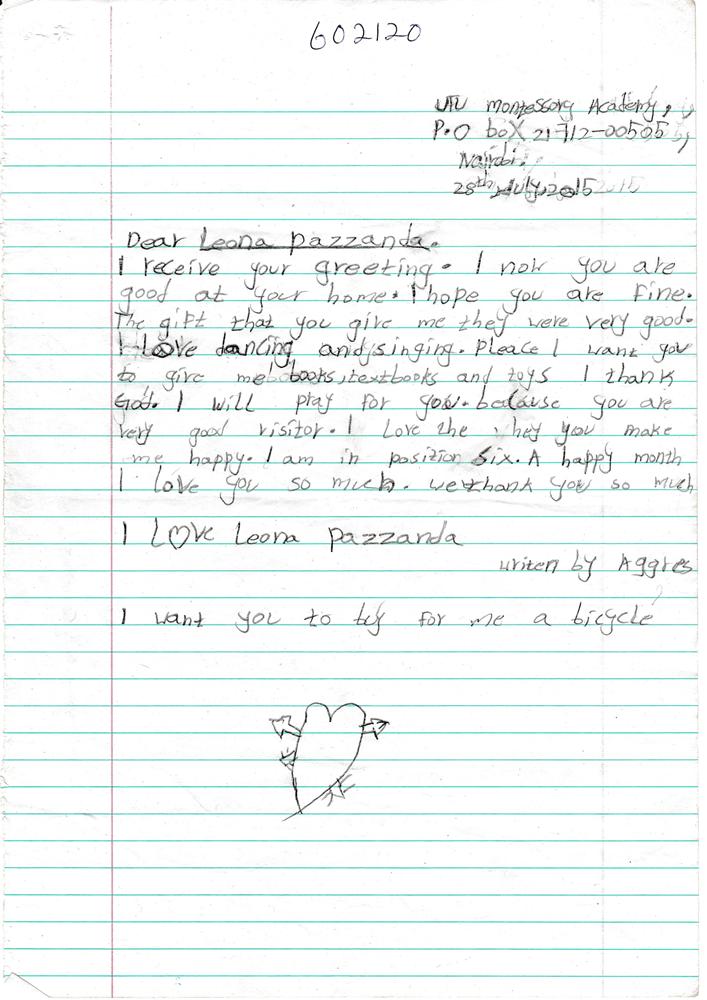 602120
UTU montessory Academy,
P.O box 21712-00505,
Nairobi.
28th July, 2015
Dear Leona pazzanda.
I receive your greeting. I now you are
good at your home. I hope you are fine.
The gift that you give me they were very good.
I Love dancing and singing. Pleace I want you
to give me books, textbooks and toys I thank
God. I will play for you. because you are
very good visitor. I Love the they you make
me happy. I am in position six. A happy month
I love you so much. we thank you so much
I LOVE Leona pazzanda
writen by Aggres
I want you to by for me a bicycle